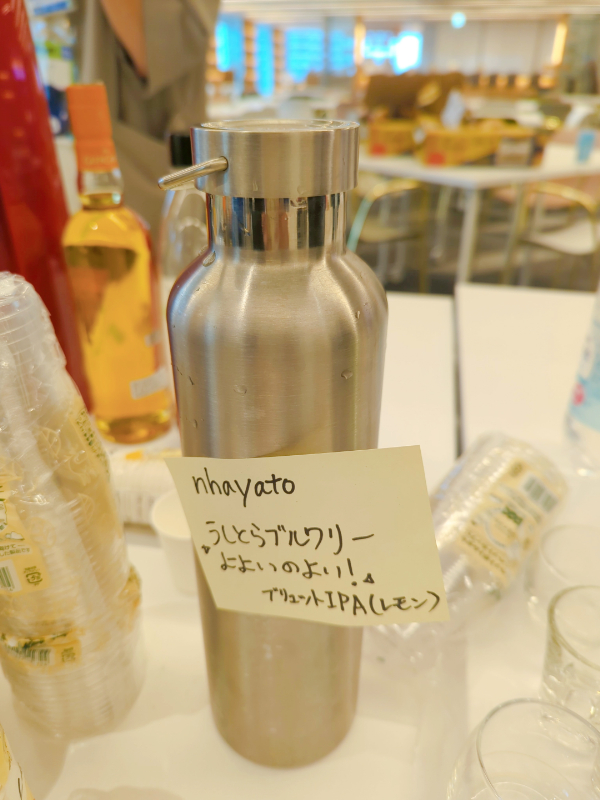 nhayato
うしとらブルワリー
"よよいのよい!"
ブリュットIPA(レモン)